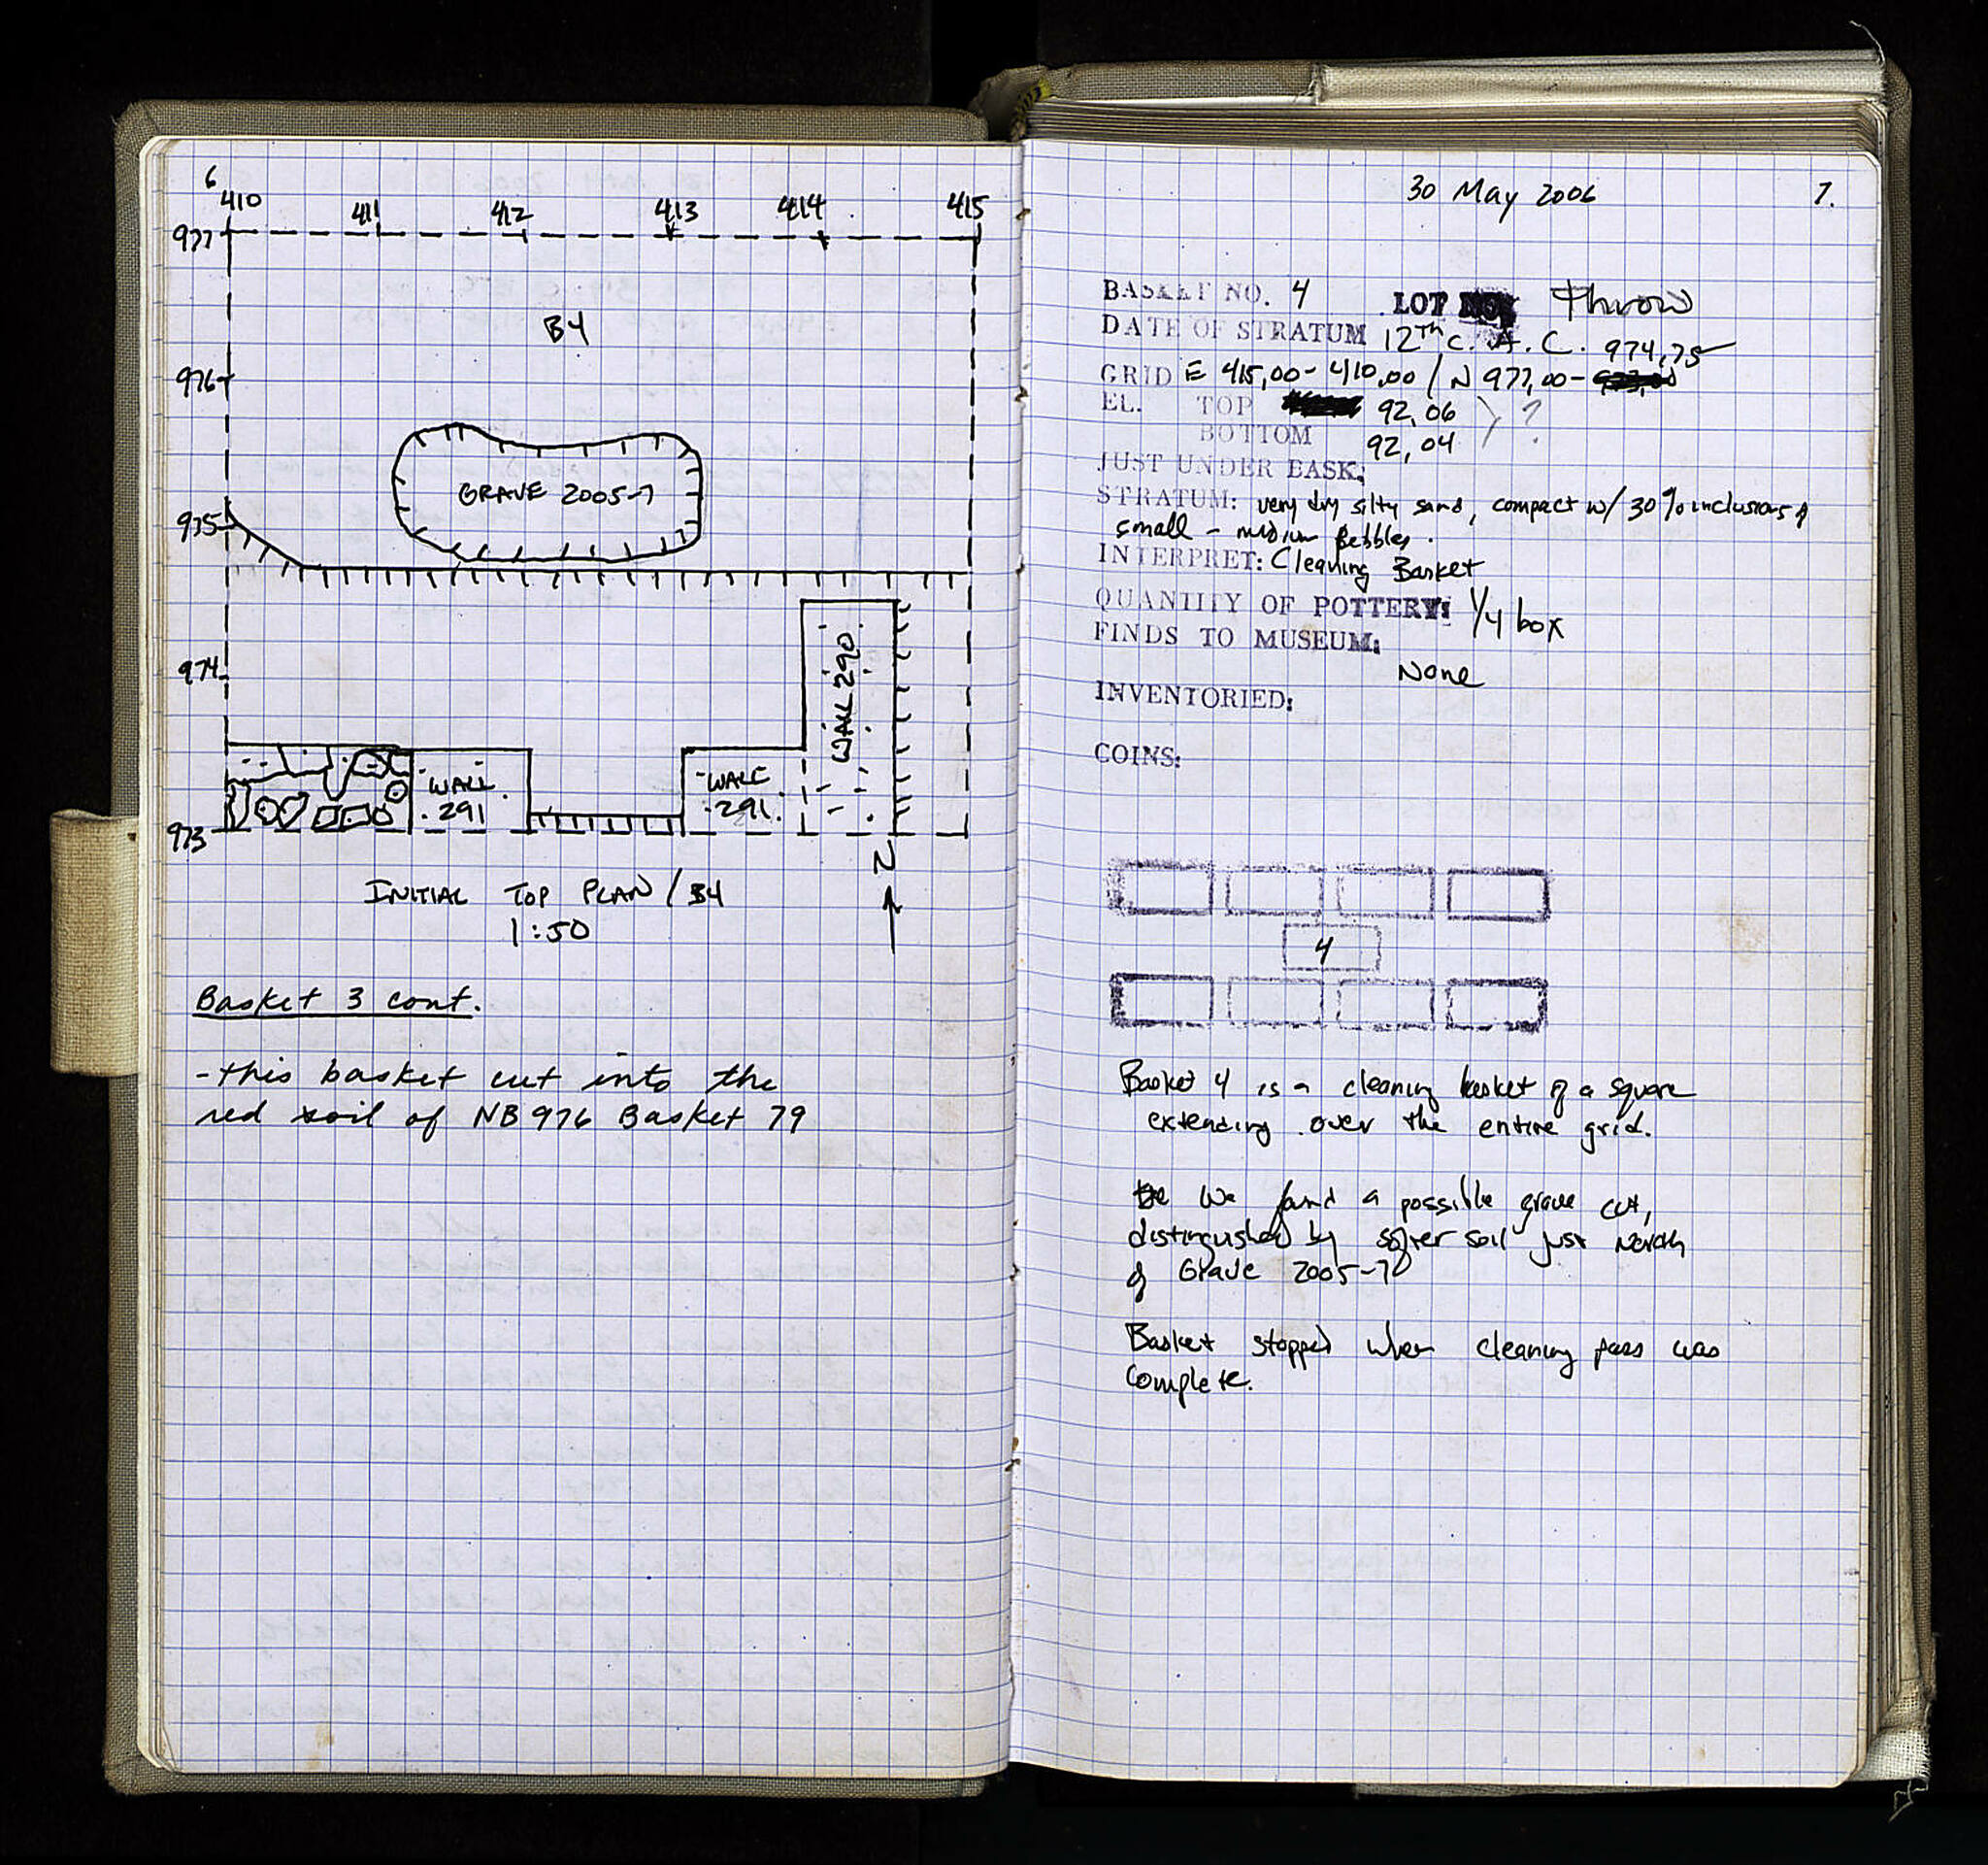 6
410 411 412 413 414 415
977
B4
976
GRAVE 2005-7
975
974
WALL 290
WALL 291
WALL 291
973
N
INITIAL TOP PLAN / B4
1:50
Basket 3 cont.
- this basket cut into the
red soil of NB 976 Basket 79
30 May 2006 7.
BASKET NO. 4 LOT NO. Throw
DATE OF STRATUM 12th c. A.C. 974,75
GRID E 415,00 - 410,00 / N 977,00 -
EL. TOP 92,06 ?
BOTTOM 92,04
JUST UNDER BASK:
STRATUM: very dry silty sand, compact w/ 30% inclusions of
small - medium pebbles.
INTERPRET: Cleaning Basket
QUANTITY OF POTTERY: 1/4 box
FINDS TO MUSEUM:
None
INVENTORIED:
COINS:
4
Basket 4 is a cleaning basket of a square
extending over the entire grid.
We found a possible grave cut,
distinguished by softer soil just North
of Grave 2005-7
Basket stopped when cleaning pass was
complete.